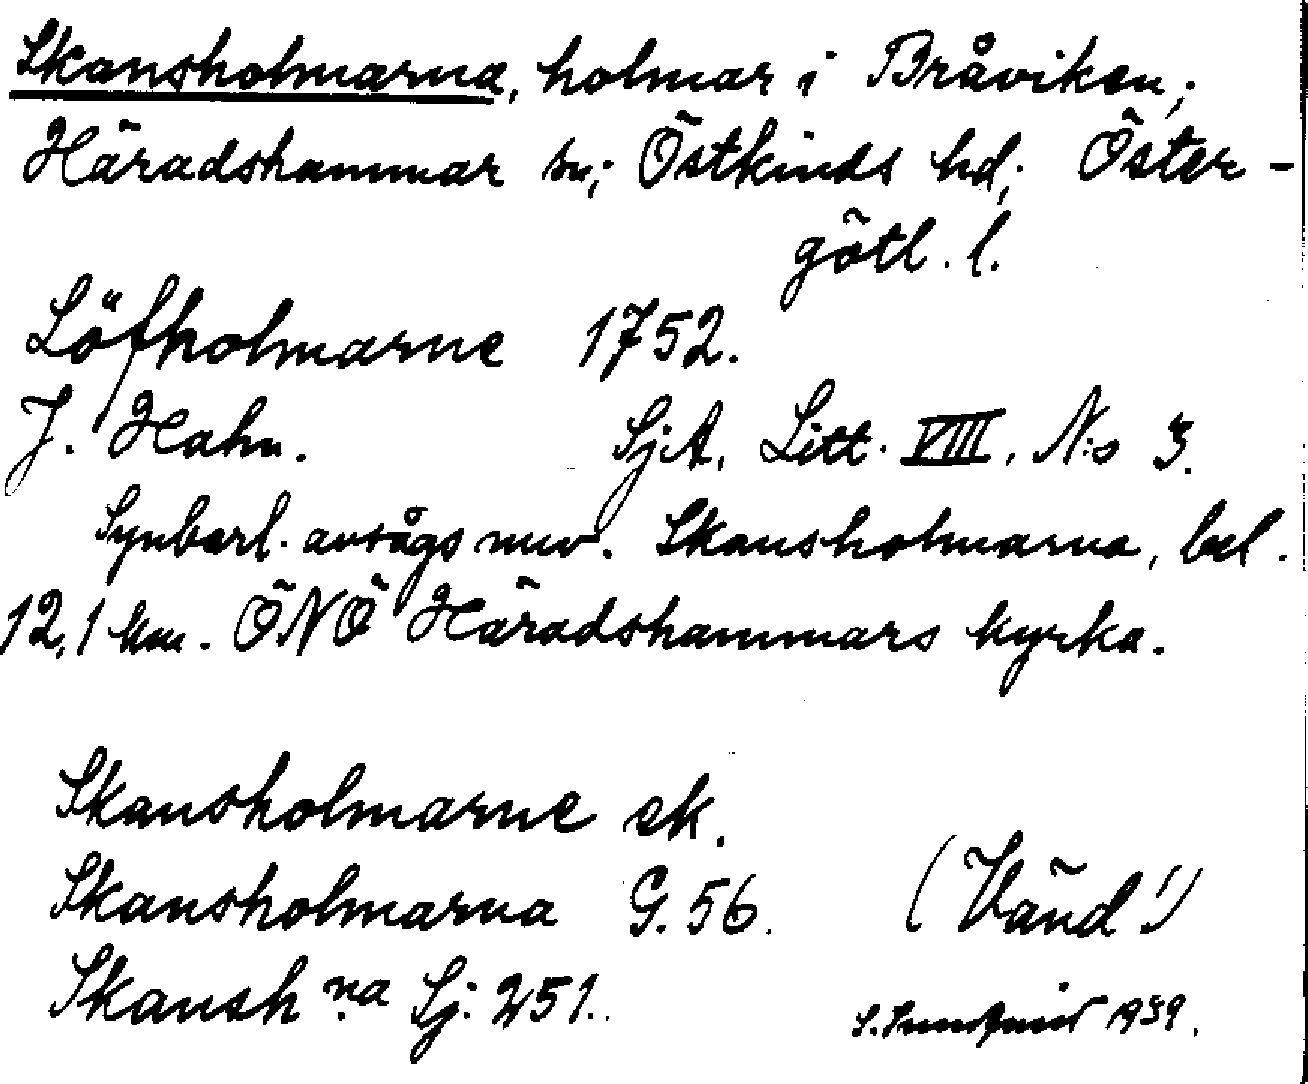 Skansholmarna, holmar i Bråviken;
Häradshammar sn; Östkinds hd; Öster-
götl. l.
Löfholmarne 1752.
J. Hahn. SjA, Litt. VIII, N:o 3.
Synbarl. avsågs nuv. Skansholmarna, bel.
12,1 km. ÖNÖ Häradshammars kyrka.
Skansholmarne ek.
Skansholmarna G. 56. (Vänd!)
Skansh n:a Sj: 251.
S. 1939.